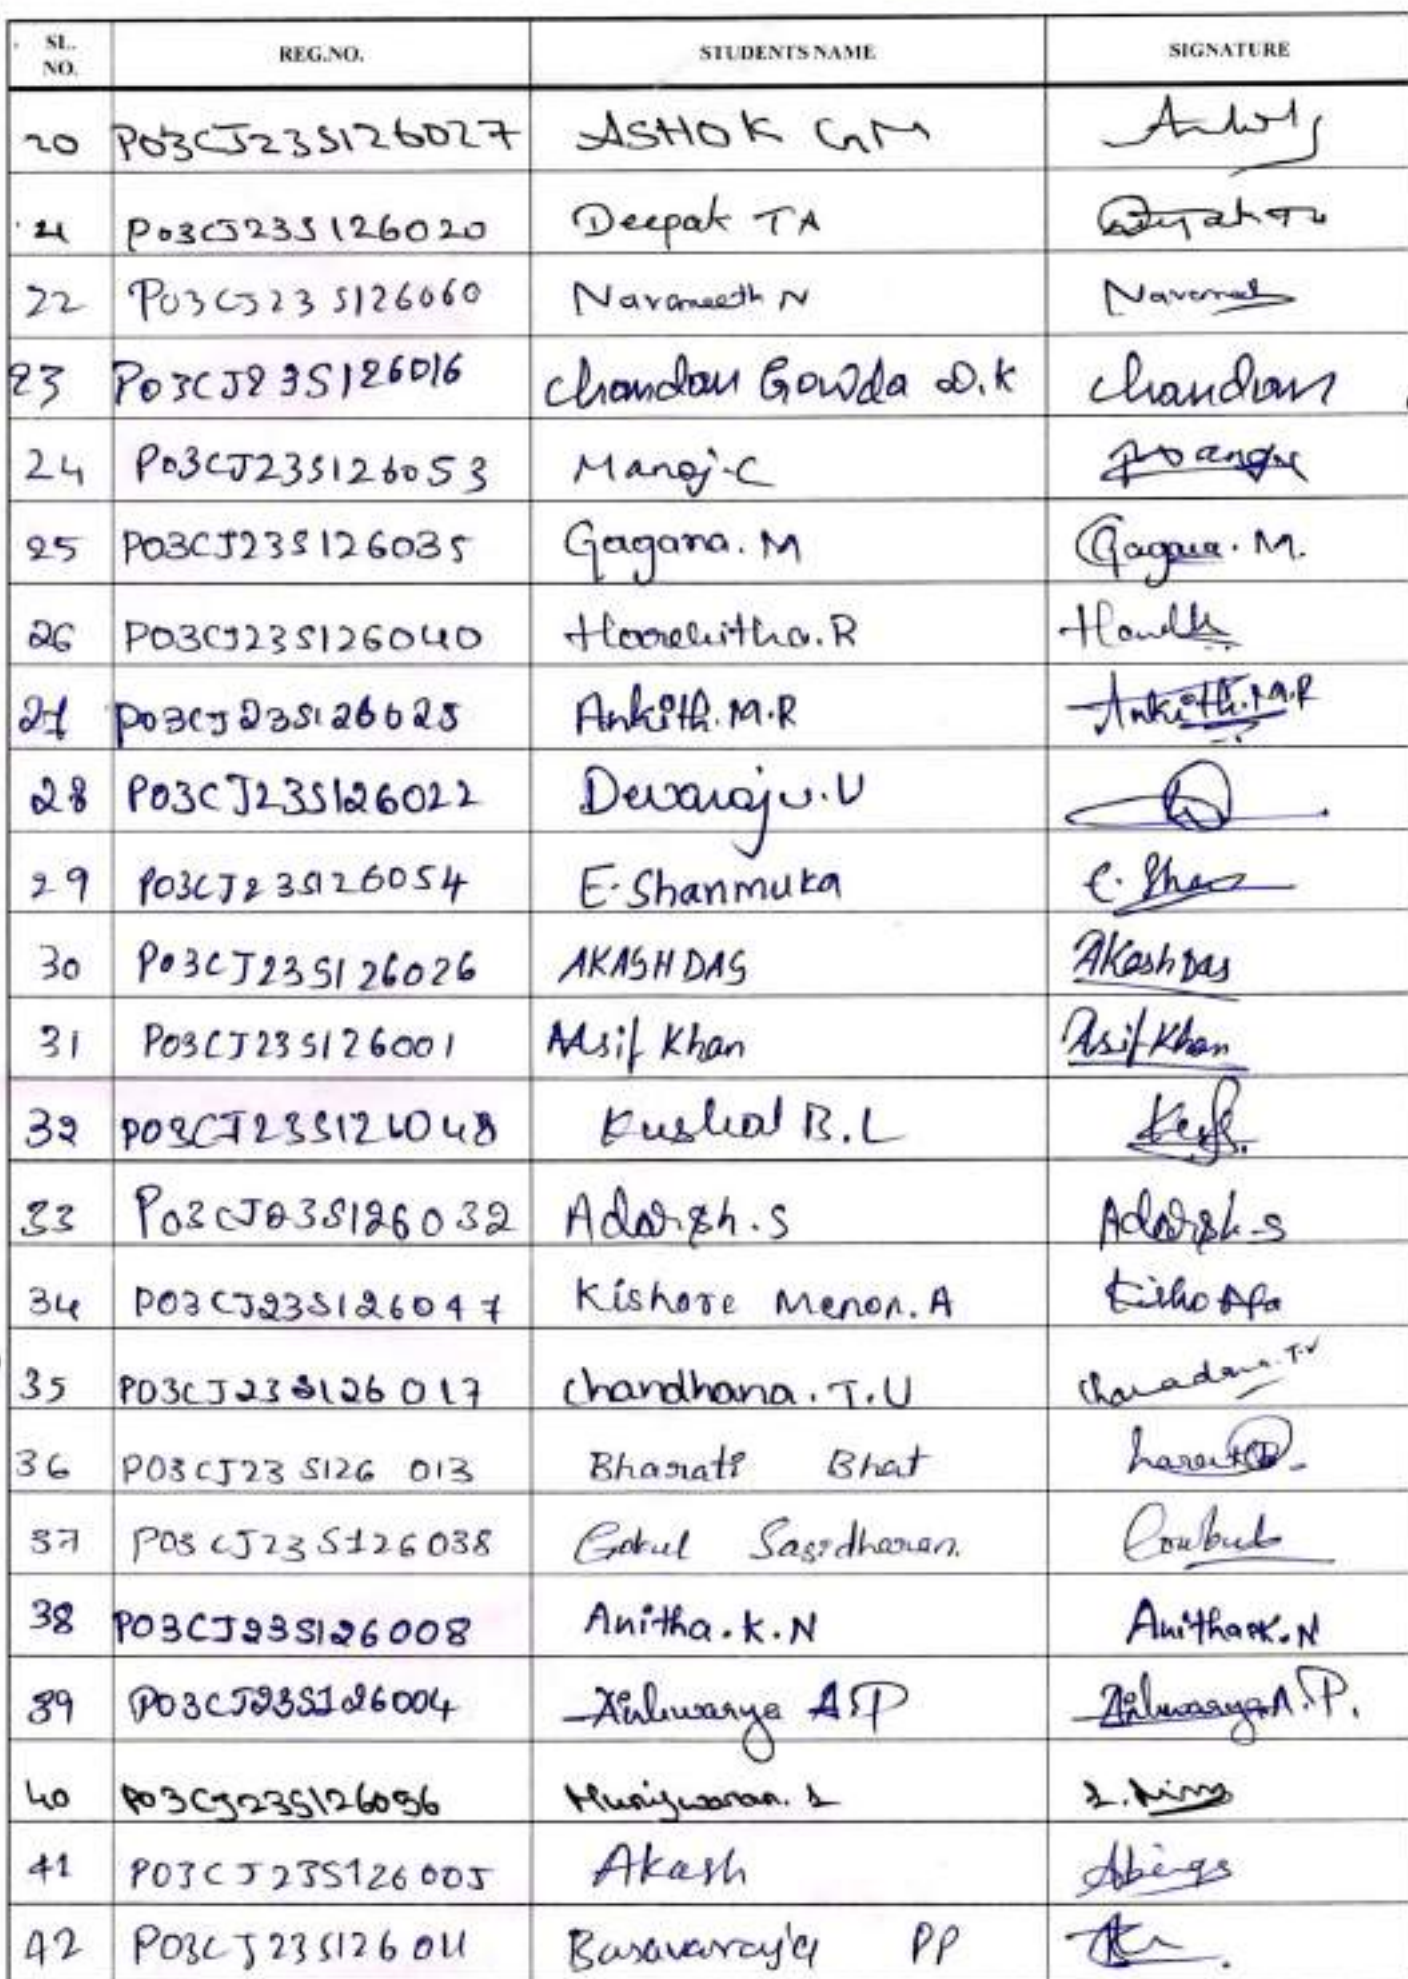 SL. NO. REG.NO. STUDENTS NAME SIGNATURE
20 P03CJ23S126027 ASHOK GM
21 P03CJ23S126020 Deepak TA
22 P03CJ23S126060 Navaneeth N
23 P03CJ23S126016 Chandan Gowda D.K Chandan
24 P03CJ23S126053 Manoj-C
25 P03CJ23S126035 Gagana. M Gagana. M.
26 P03CJ23S126040 R
27 P03CJ23S126025 Ankith. M.R Ankith. M.R
28 P03CJ23S126022 Devaraju. V
29 P03CJ23S126054 E. Shanmuka
30 P03CJ23S126026 AKASH DAS AKash Das
31 P03CJ23S126001 Asif Khan Asif Khan
32 P03CJ23S126048 Kushal B. L
33 P03CJ23S126032 Adarsh. S Adarsh. S
34 P03CJ23S126047 Kishore Menon. A
35 P03CJ23S126017 Chandhana. T. U
36 P03CJ23S126 013 Bharati Bhat
37 P03CJ23S126038 Gokul Sasidharan.
38 P03CJ23S126008 Anitha. K. N Anitha K. N
39 P03CJ23S126004 Aishwarya A.P Aishwarya A. P.
40 Muniswaran. S
41 P03CJ23S126005 Akash
42 P03CJ23S126011 Basavaraja PP